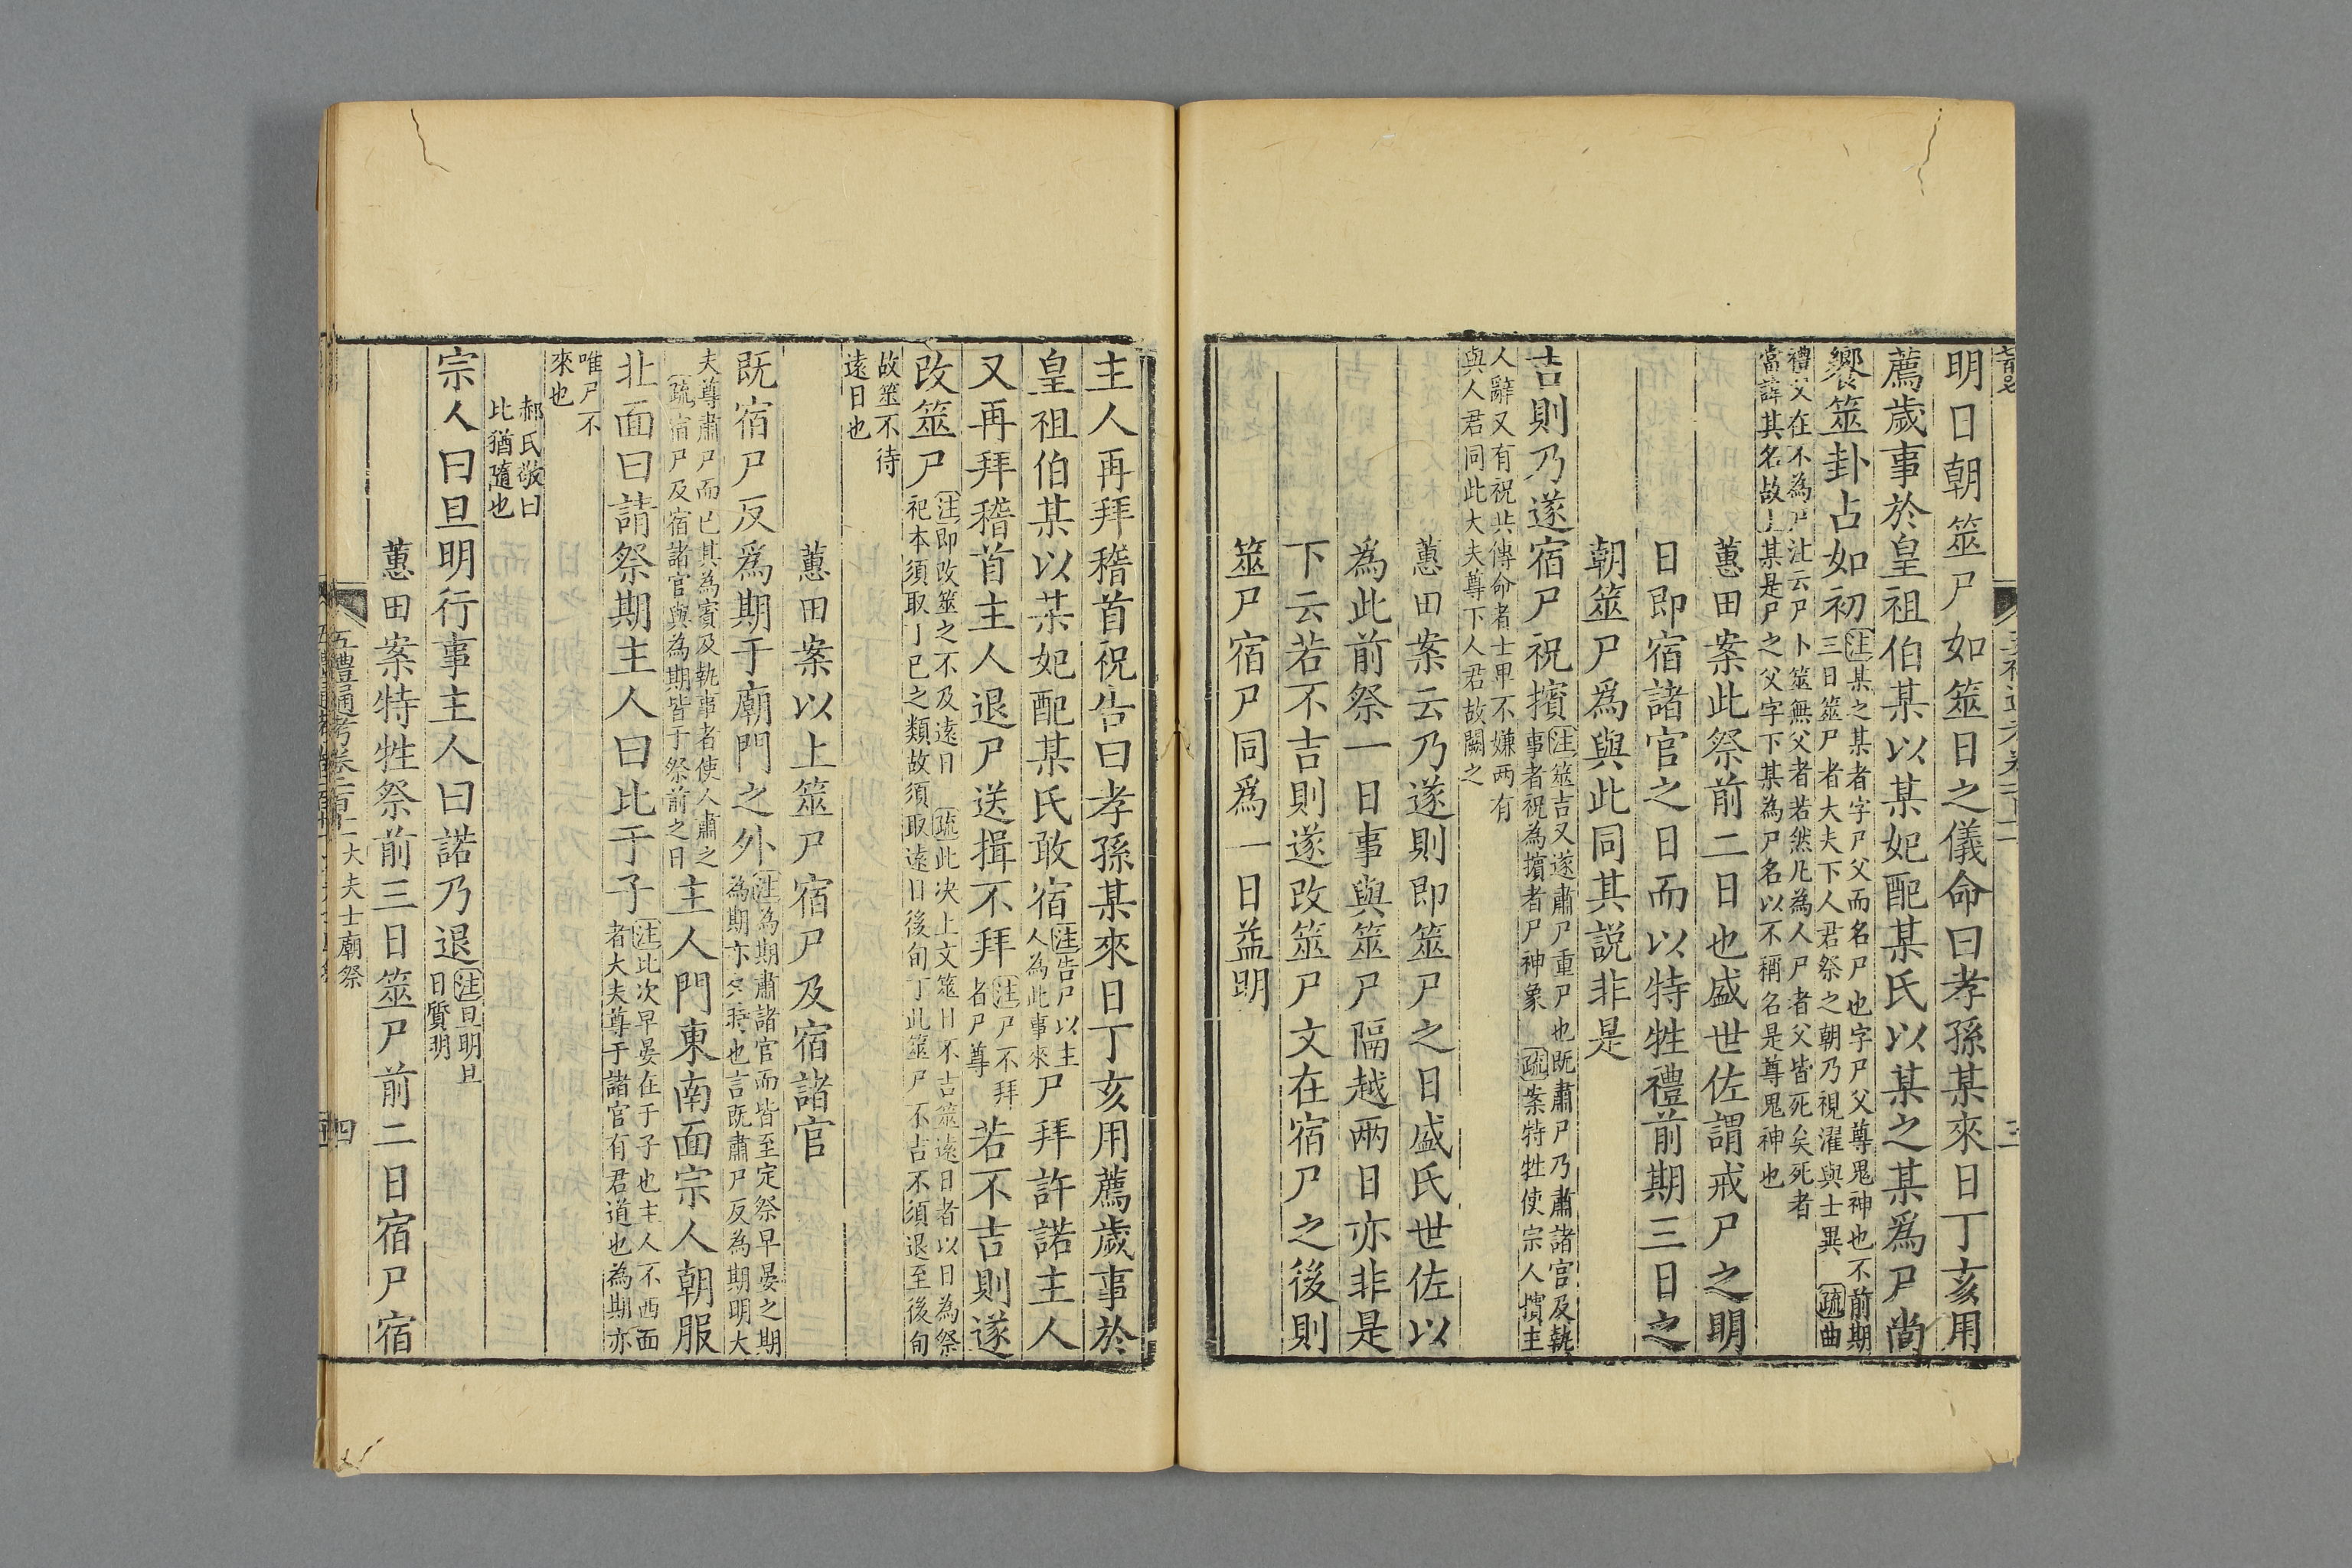 明日朝筮尸如筮日之儀命曰孝孫某來日丁亥用
薦歲事於皇祖伯某以某妃配某氏以某之某爲尸尚
饗筮卦占如初注某之某者字尸父而名尸也字尸父尊鬼神也不前期
三日筮尸者大夫下人君祭之朝乃視濯與士異 疏曲
禮父在不為尸注云尸卜筮無父者若然凡為人尸者父皆死矣死者
當諱其名故上某是尸之父字下某為尸名以不稱名是尊鬼神也
蕙田案此祭前二日也盛世佐謂戒尸之明
日即宿諸官之日而以特牲禮前期三日之
朝筮尸爲與此同其説非是
吉則乃遂宿尸祝擯注筮吉又遂肅尸重尸也既肅尸乃肅諸官及執
事者祝為擯者尸神象 疏案特牲使宗人擯主
人辭又有祝共傳命者士卑不嫌兩有
與人君同此大夫尊下人君故闕之
蕙田案云乃遂則即筮尸之日盛氏世佐以
爲此前祭一日事與筮尸隔越兩日亦非是
下云若不吉則遂改筮尸文在宿尸之後則
筮尸宿尸同爲一日益明
主人再拜稽首祝告曰孝孫某來日丁亥用薦歲事於
皇祖伯某以某妃配某氏敢宿注告尸以主
人為此事來尸拜許諾主人
又再拜稽首主人退尸送揖不拜注尸不拜
者尸尊若不吉則遂
改筮尸注即改筮之不及遠日 疏此决上文筮日不吉筮遠日者以日為祭
祀本須取丁已之類故須取遠日後旬丁此筮尸不吉不須退至後旬
故筮不待
遠日也
蕙田案以上筮尸宿尸及宿諸官
既宿尸反爲期于廟門之外注為期肅諸官而皆至定祭早晏之期
為期亦夕時也言既肅尸反為期明大
夫尊肅尸而已其為賓及執事者使人肅之
疏宿尸及宿諸官與為期皆于祭前之日主人門東南面宗人朝服
北面曰請祭期主人曰比于子注此次早晏在于子也主人不西面
者大夫尊于諸官有君道也為期亦
唯尸不
來也
郝氏敬曰
比猶隨也
宗人曰旦明行事主人曰諾乃退注旦明旦
日質明
蕙田案特牲祭前三日筮尸前二日宿尸宿
五禮通考卷一百十二大夫士廟祭
四